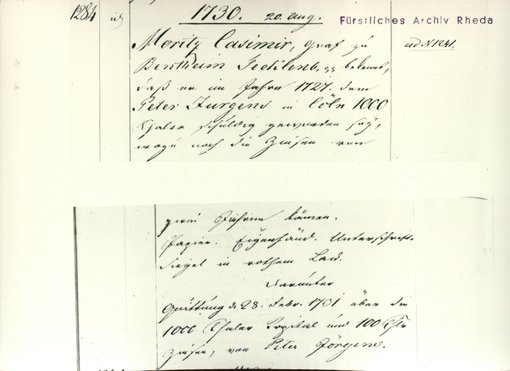 1284
1730. 20. Aug.
Fürstliches Archiv Rheda
Moritz Casimir, Graf zu
ad N 1241.
Bentheim Tecklenb. bekennt,
daß er im Jahre 1727. dem
Peter Jurgens in Cöln 1000
Thaler schuldig geworden sey,
wozu noch die Zinsen von
zwei Jahren kämen.
Papier. Eigenhänd. Unterschrift.
Siegel in rothem Lack.
Darunter
Quittung d. 28. Febr. 1731 über die
1000 Thaler Capital und 100 Thr
Zinsen, von Peter Jörgens.